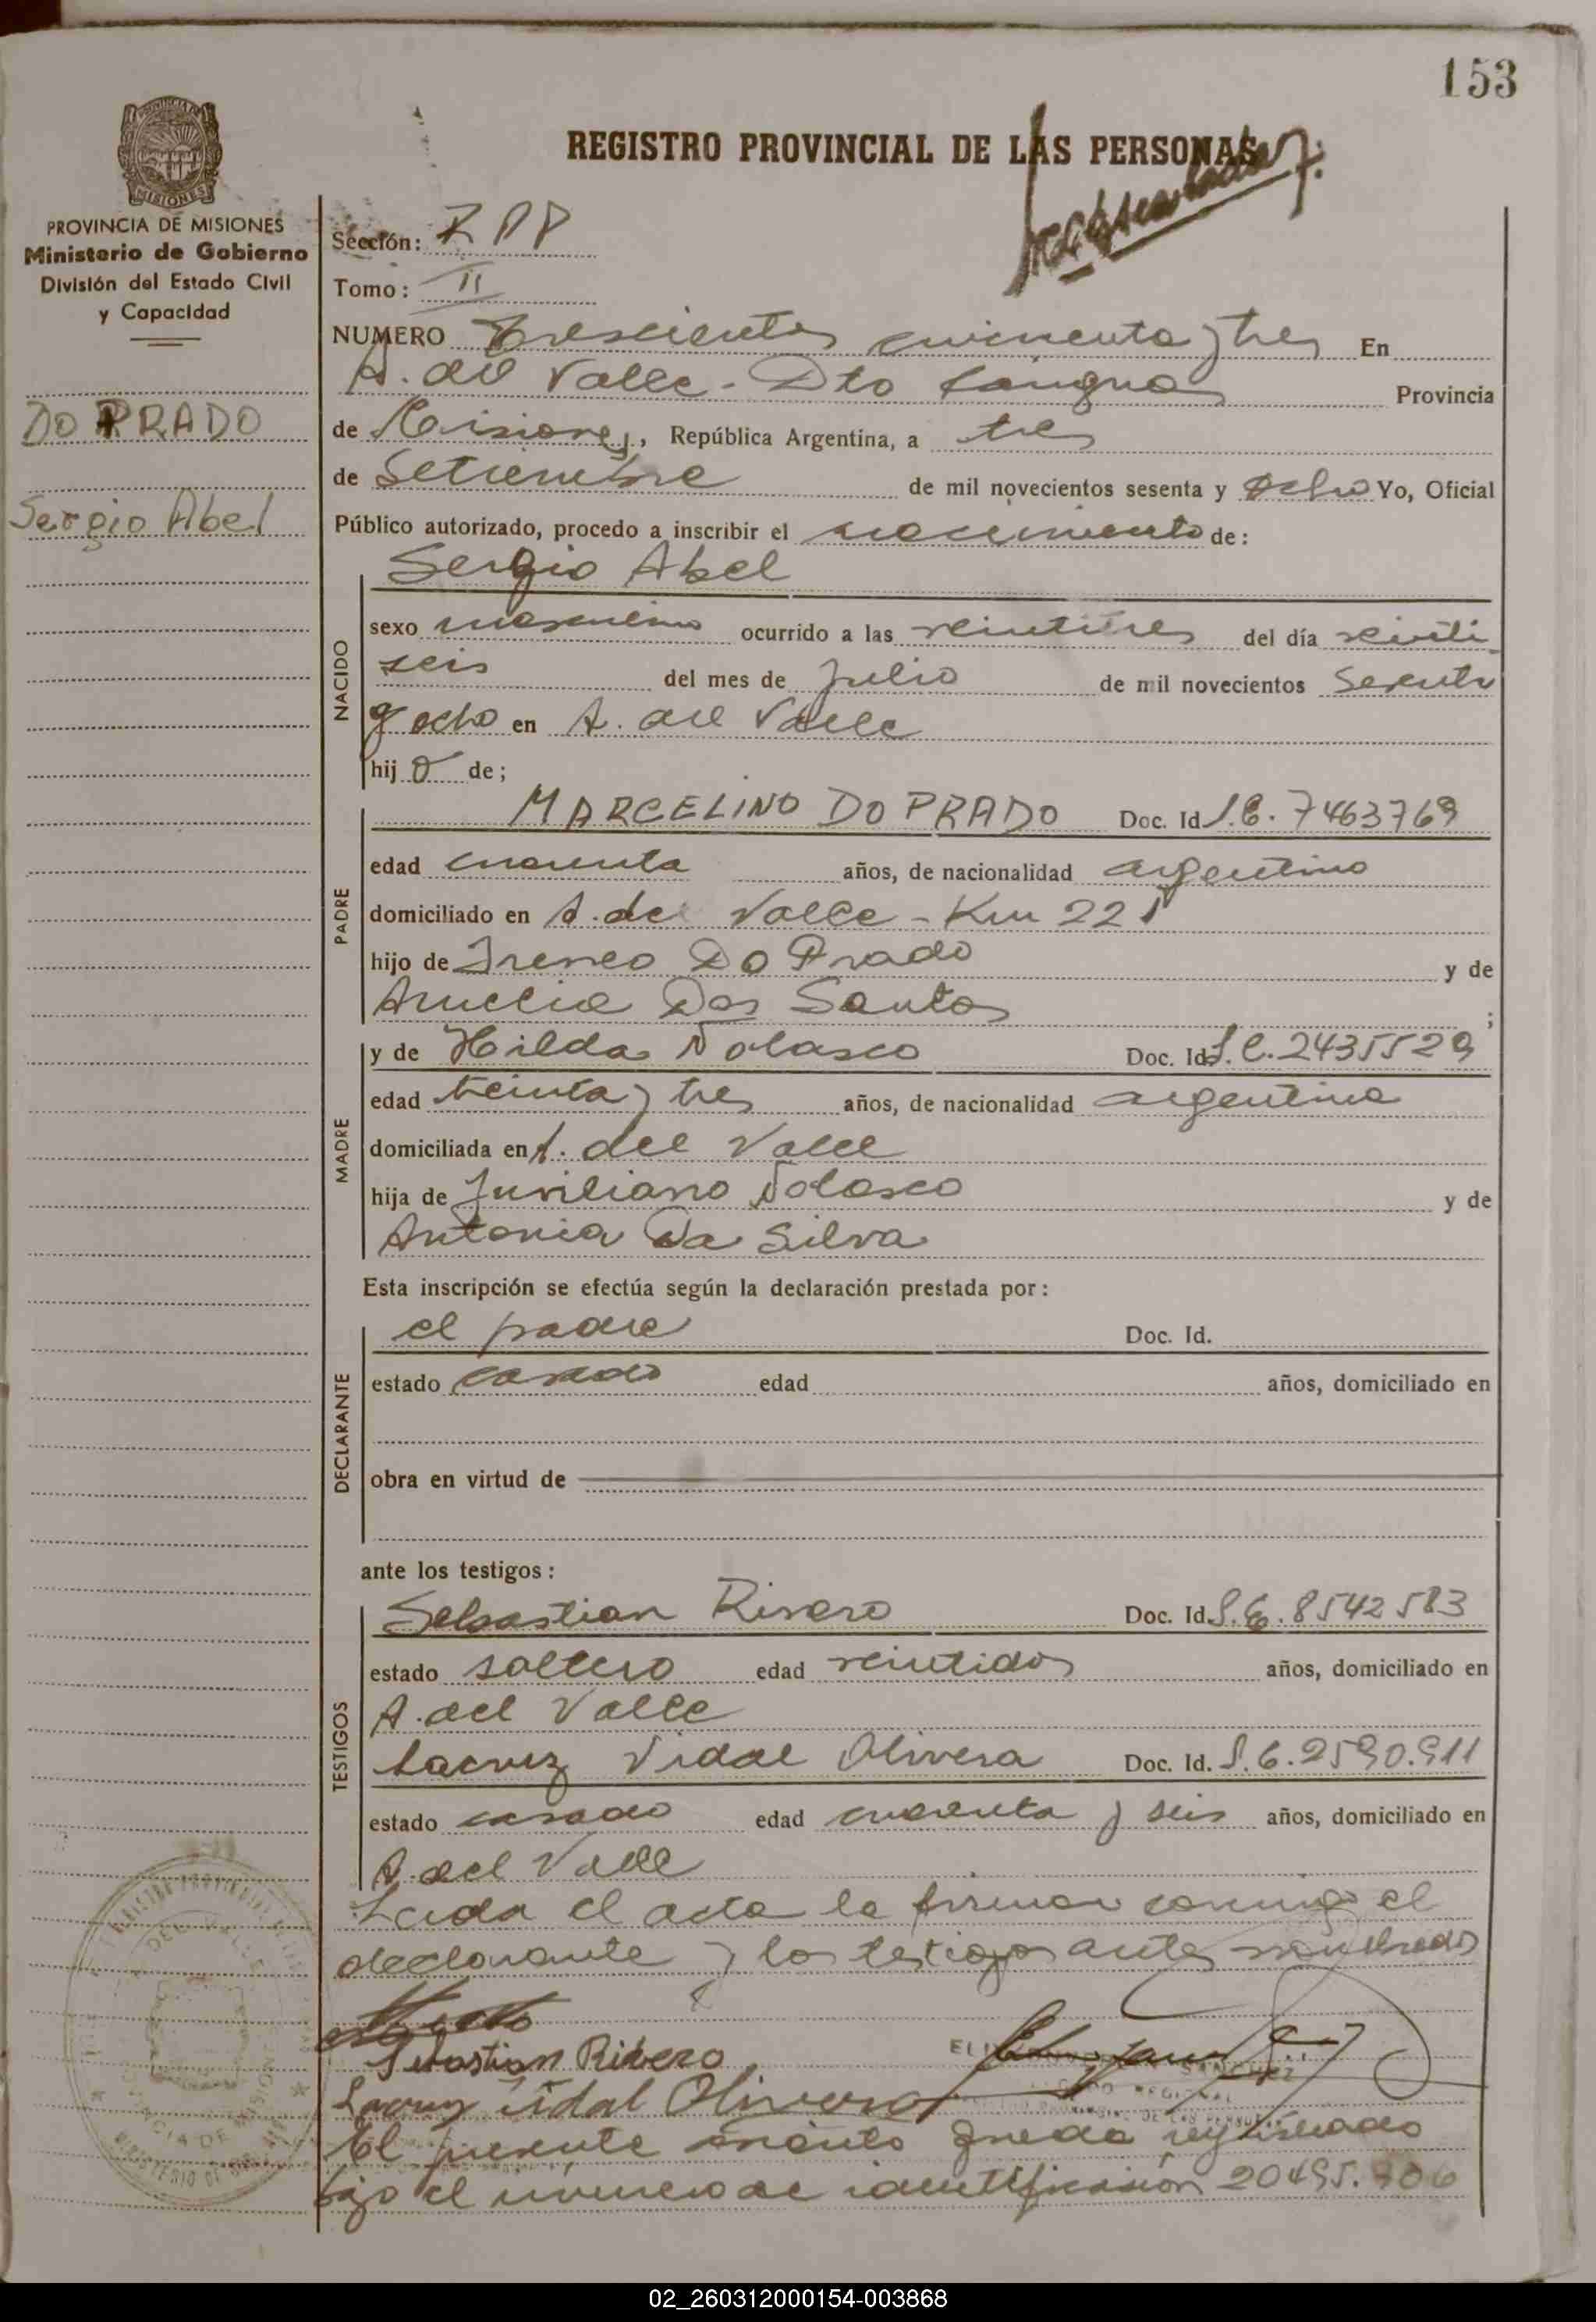 153
REGISTRO PROVINCIAL DE LAS PERSONAS
MISIONES
PROVINCIA DE MISIONES
Ministerio de Gobierno
División del Estado Civil
y Capacidad
DO PRADO
Sergio Abel
Sección: RPP
Tomo: II
NUMERO Trescientos cincuenta y tres En
A. del Valle - Dto Cainguas Provincia
de Misiones, República Argentina, a tres
de Setiembre de mil novecientos sesenta y ocho Yo, Oficial
Público autorizado, procedo a inscribir el nacimiento de:
NACIDO
Sergio Abel
sexo masculino ocurrido a las del día veinti
seis del mes de Julio de mil novecientos Sesenta
y ocho en A. del Valle
hijo de;
PADRE
MARCELINO DO PRADO Doc. Id L.E. 7463769
edad cuarenta años, de nacionalidad argentino
domiciliado en A. del Valle - Km 221
hijo de Ireneo Do Prado y de
Amelia Dos Santos ;
MADRE
y de Hilda Nolasco Doc. Id L.C. 2435529
edad treinta y tres años, de nacionalidad argentina
domiciliada en A. del Valle
hija de Juviliano Nolasco y de
Antonia Da Silva
Esta inscripción se efectúa según la declaración prestada por:
DECLARANTE
el padre Doc. Id.
estado casado edad años, domiciliado en
obra en virtud de
ante los testigos:
TESTIGOS
Sebastian Rivero Doc. Id L.E. 8542583
estado soltero edad veintidos años, domiciliado en
A. del Valle
Lacruz Vidal Olivera Doc. Id. L.E. 2590.911
estado casado edad cuarenta y seis años, domiciliado en
A. del Valle
Leida el acta la firman conmigo el
declarante y los testigos antes nombrados
Sebastian Ribero
Lacruz Vidal Olivera
El presente asiento queda registrado
bajo el número de identificasión 20495.706
02_260312000154-003868